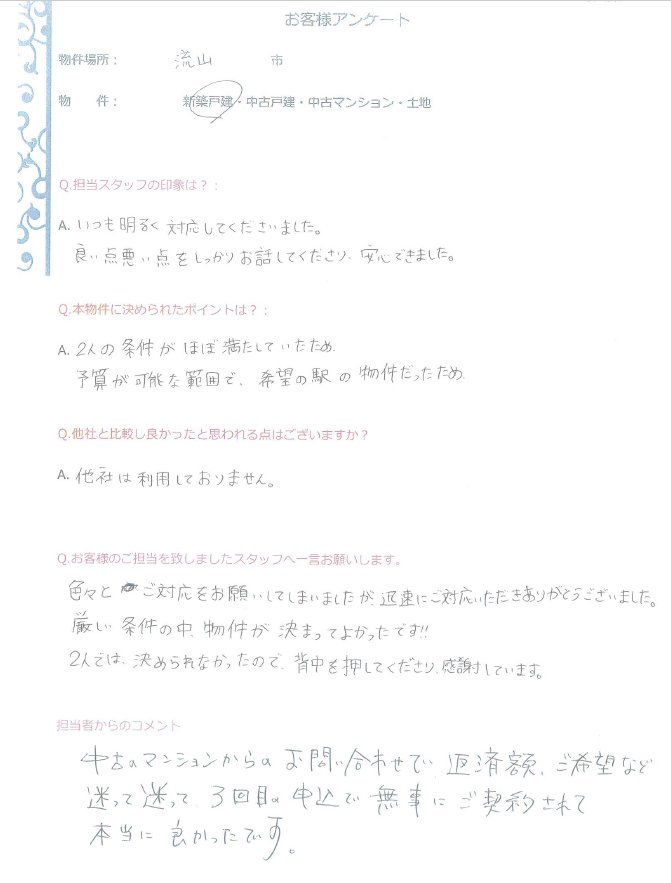 お客様アンケート
物件場所： 流山 市
物 件： 新築戸建・中古戸建・中古マンション・土地
Q.担当スタッフの印象は？：
A. いつも明るく対応してくださいました。
良い点悪い点をしっかりお話してくださり、安心できました。
Q.本物件に決められたポイントは？：
A. 2人の条件がほぼ満たしていたため、
予算が可能な範囲で、希望の駅の物件だったため、
Q.他社と比較し良かったと思われる点はございますか？
A. 他社は利用しておりません。
Q.お客様のご担当を致しましたスタッフへ一言お願いします。
色々とご対応をお願いしてしまいましたが、迅速にご対応いただきありがとうございました。
厳しい条件の中、物件が決まってよかったです!!
2人では、決められなかったので、背中を押してくださり、感謝しています。
担当者からのコメント
中古のマンションからのお問い合わせで、返済額、ご希望など
迷って迷って、3回目の申込で無事にご契約されて
本当に良かったです。